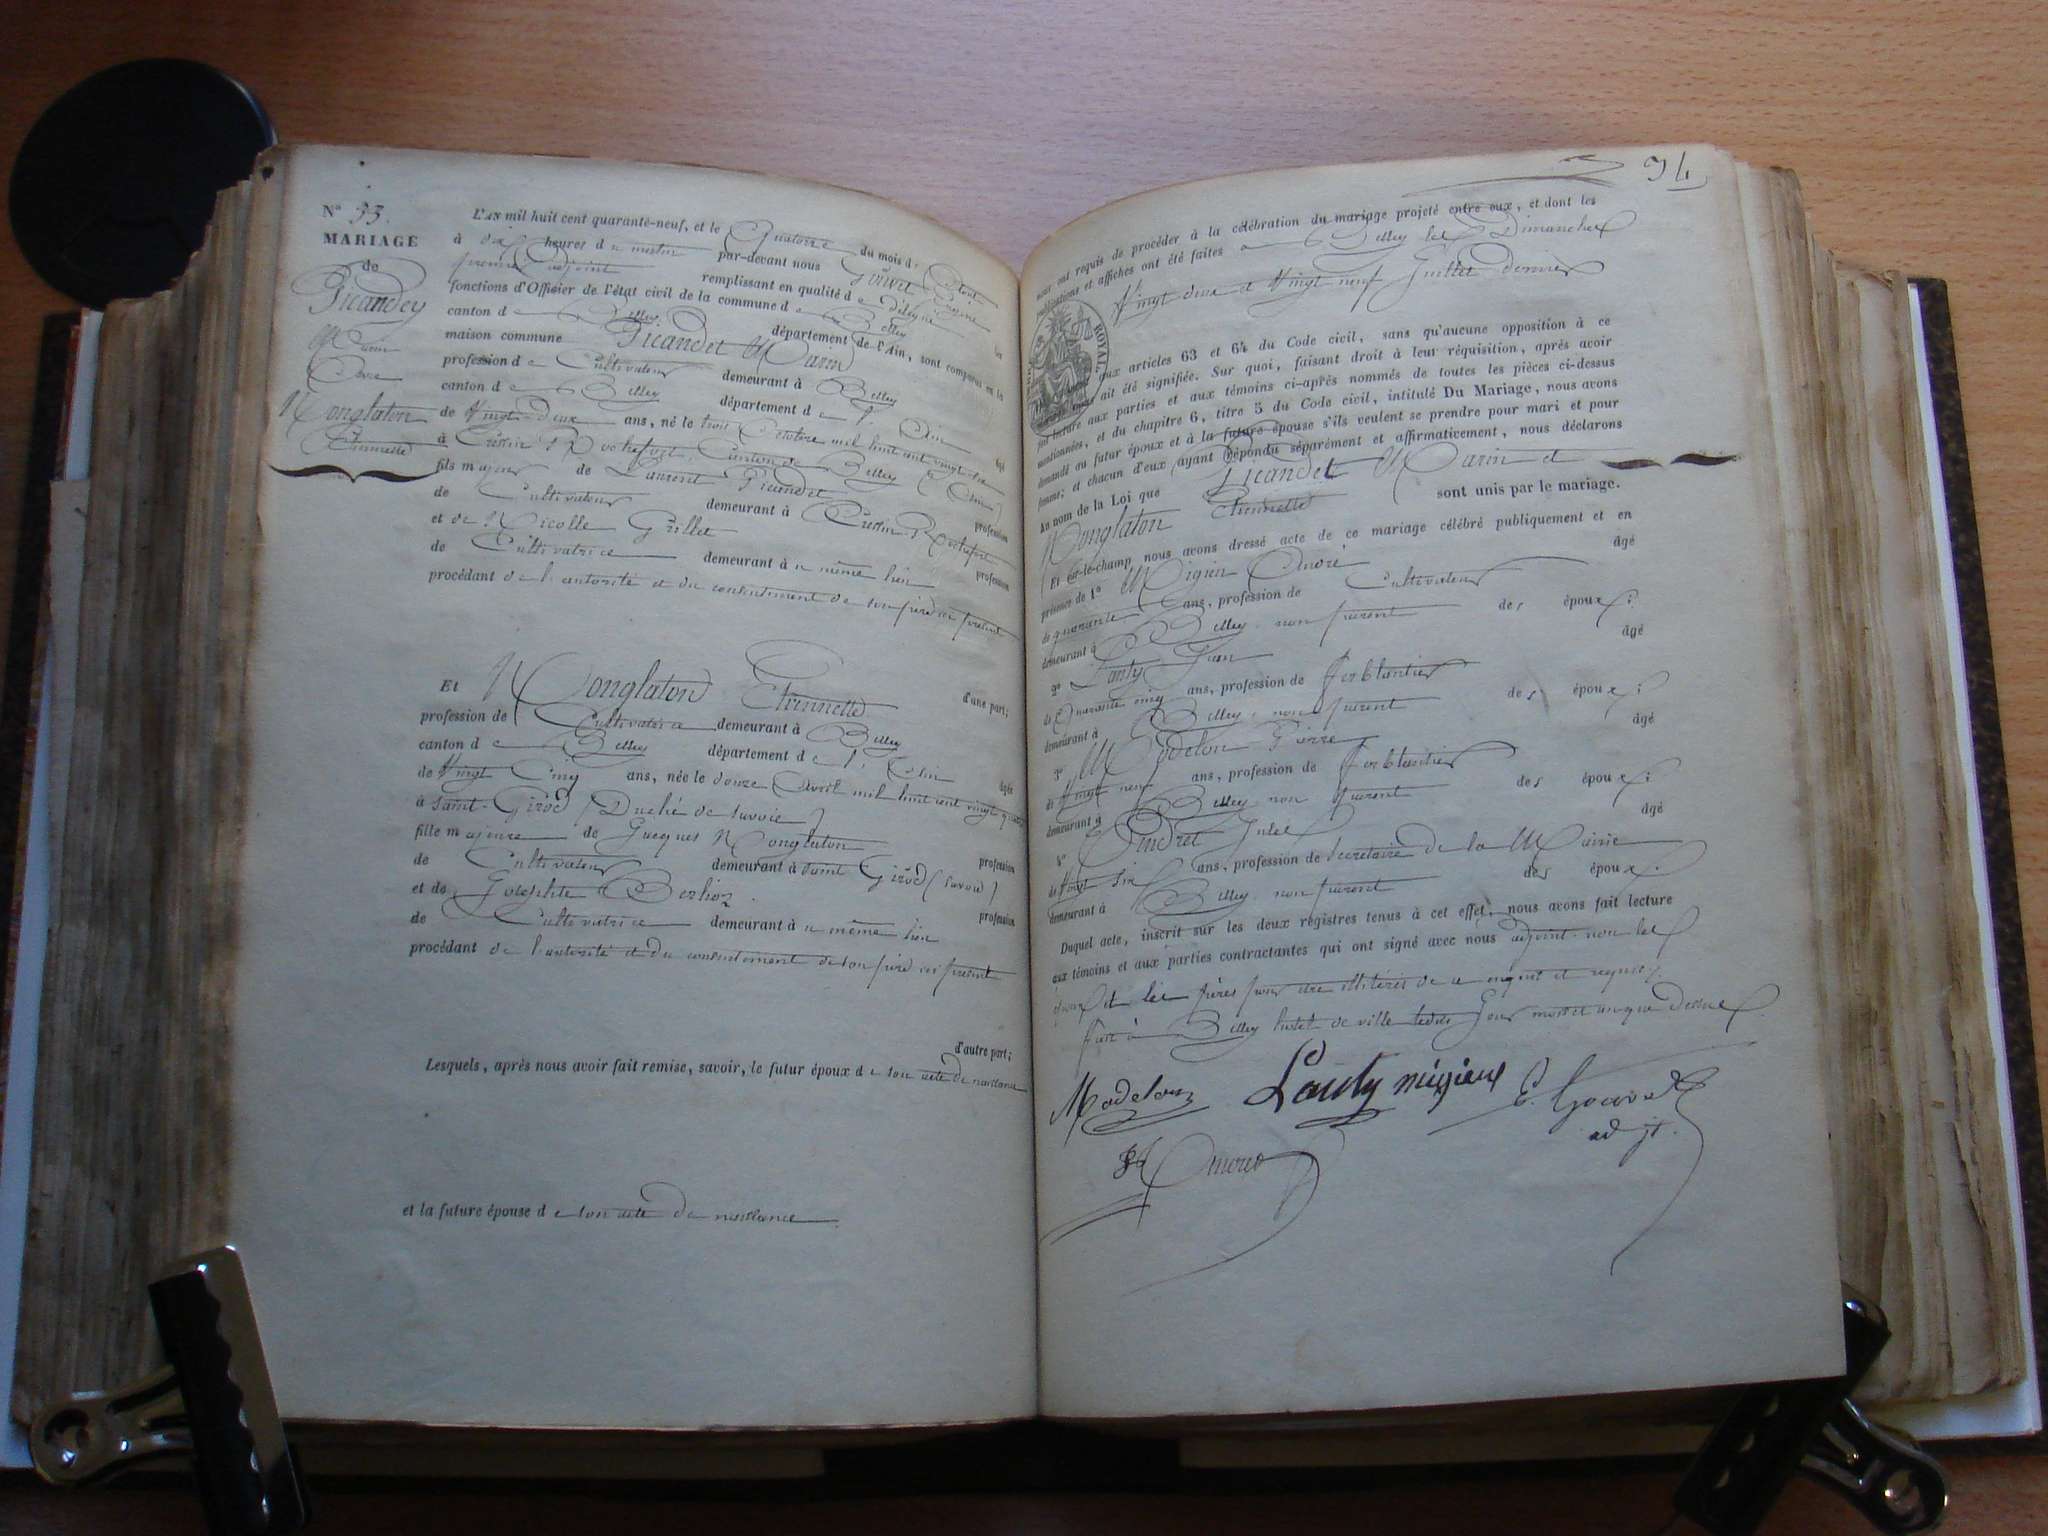 N° 53.
MARIAGE
de
Picandet
Marin
Avec
Monglaton
Etiennette
L'AN mil huit cent quarante-neuf, et le Quatorze du mois d'Août
à dix heures du matin par-devant nous Gouvet
premier adjoint remplissant en qualité de délégué les
fonctions d'Officier de l'état civil de la commune de Belley
canton de Belley département de l'Ain, sont comparus en la
maison commune Picandet Marin
profession de Cultivateur demeurant à Belley
canton de Belley département de l'Ain âgé
de Vingt-deux ans, né le trois Octobre mil huit cent vingt-six
à Cressin Rochefort, Canton de Belley (Ain)
fils majeur de Laurent Picandet profession
de Cultivateur demeurant à Cressin Rochefort
et de Nicolle Grillet profession
de Cultivatrice demeurant à u même lieu
procédant de l'autorité et du consentement de son père ici présent
d'une part;
Et Monglaton Etiennette
profession de Cultivatrice demeurant à Belley
canton de Belley département de l'Ain âgée
de Vingt Cinq ans, née le douze Avril mil huit cent vingt quatre
à saint-Girod (Duché de Savoie)
fille majeure de Jacques Monglaton profession
de Cultivateur demeurant à saint Girod (Savoie)
et de Josephte Berlioz profession
de Cultivatrice demeurant à u même lieu
procédant de l'autorité et du consentement de son père ici présent
d'autre part;
Lesquels, après nous avoir fait remise, savoir, le futur époux de son acte de naissance
et la future épouse de son acte de naissance
34
nous ont requis de procéder à la célébration du mariage projeté entre eux, et dont les
publications et affiches ont été faites à Belley les Dimanches
Vingt deux et Vingt neuf Juillet dernier
ROYAL
aux articles 63 et 64 du Code civil, sans qu'aucune opposition à ce
ait été signifiée. Sur quoi, faisant droit à leur réquisition, après avoir
fait lecture aux parties et aux témoins ci-après nommés de toutes les pièces ci-dessus
mentionnées, et du chapitre 6, titre 5 du Code civil, intitulé Du Mariage, nous avons
demandé au futur époux et à la future épouse s'ils veulent se prendre pour mari et pour
femme; et chacun d'eux ayant répondu séparément et affirmativement, nous déclarons
au nom de la Loi que Picandet Marin et
Monglaton Etiennette sont unis par le mariage.
Et sur-le-champ nous avons dressé acte de ce mariage célébré publiquement et en
présence de 1° Migieu André âgé
de quarante ans, profession de Cultivateur
demeurant à Belley non parent des époux;
2° Lanty Jean âgé
de Quarante cinq ans, profession de Ferblantier
demeurant à Belley, non parent des époux;
3° Modelon Pierre âgé
de Vingt neuf ans, profession de Ferblantier
demeurant à Belley non parent des époux;
4° Jules âgé
de Vingt six ans, profession de Secretaire de la Mairie
demeurant à Belley non parent des époux.
Duquel acte, inscrit sur les deux registres tenus à cet effet, nous avons fait lecture
aux témoins et aux parties contractantes qui ont signé avec nous adjoint non les
époux et les pères pour être illitérés de ce enquis et requis.
fait à Belley hotel de ville les dits Jour mois et an que dessus.
Modelon Lanty migieux C. Gouvet
adjt.